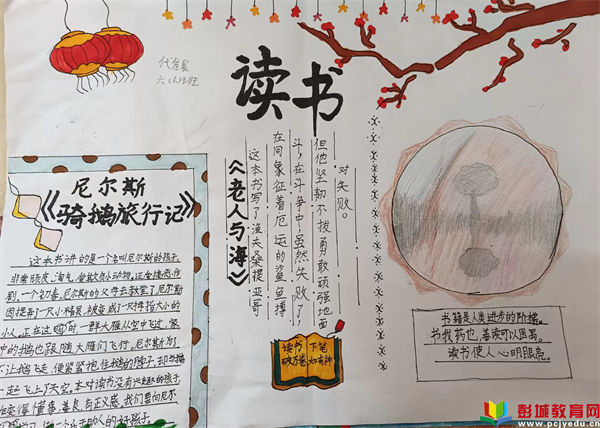 读书
尼尔斯
《骑鹅旅行记》
这本书讲的是一个名叫尼尔斯的孩子
非常顽皮、淘气、爱欺负小动物,还会搞恶作
剧,一个初春,尼尔斯的父母去教堂了,尼尔斯
因捉弄了一只小精灵,被变成了一只拇指大的
小人,正在这时一群大雁从空中飞过,家
中的鹅也跟随大雁们飞行,尼尔斯为了
不让鹅飞走,便紧紧抱住鹅的脖子,却与鹅
一起飞上了天空,本对读书没有兴趣的孩子
变得懂事、善良、有正义感,我们要向尼尔
学习,做一个助人的好孩子。
《老人与海》
这本书写了渔夫桑提亚哥
在同象征着厄运的鲨鱼搏
斗,在斗争中虽然失败了,
但他坚韧不拔勇敢顽强地面
对失败。
读书
破万卷
下笔
如有神
书籍是人类进步的阶梯。
书犹药也,善读可以医愚。
读书使人心明眼亮。
彭城教育网
www.pcjyedu.cn